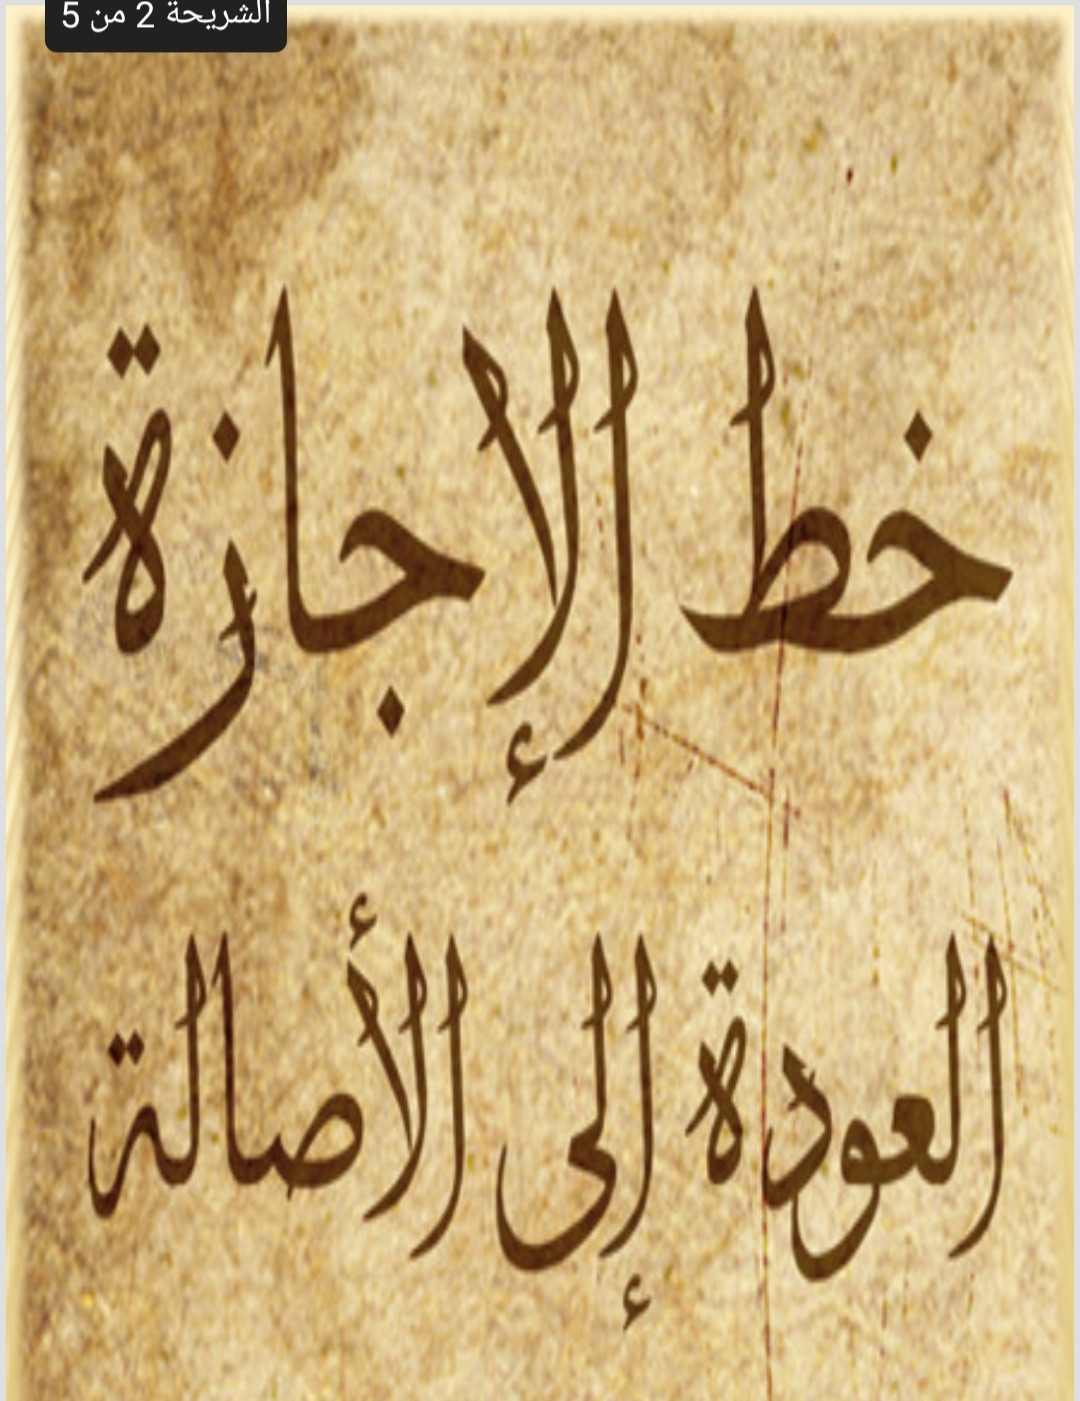 الشريحة 2 من 5
خط الإجازة
العودة إلى الأصالة